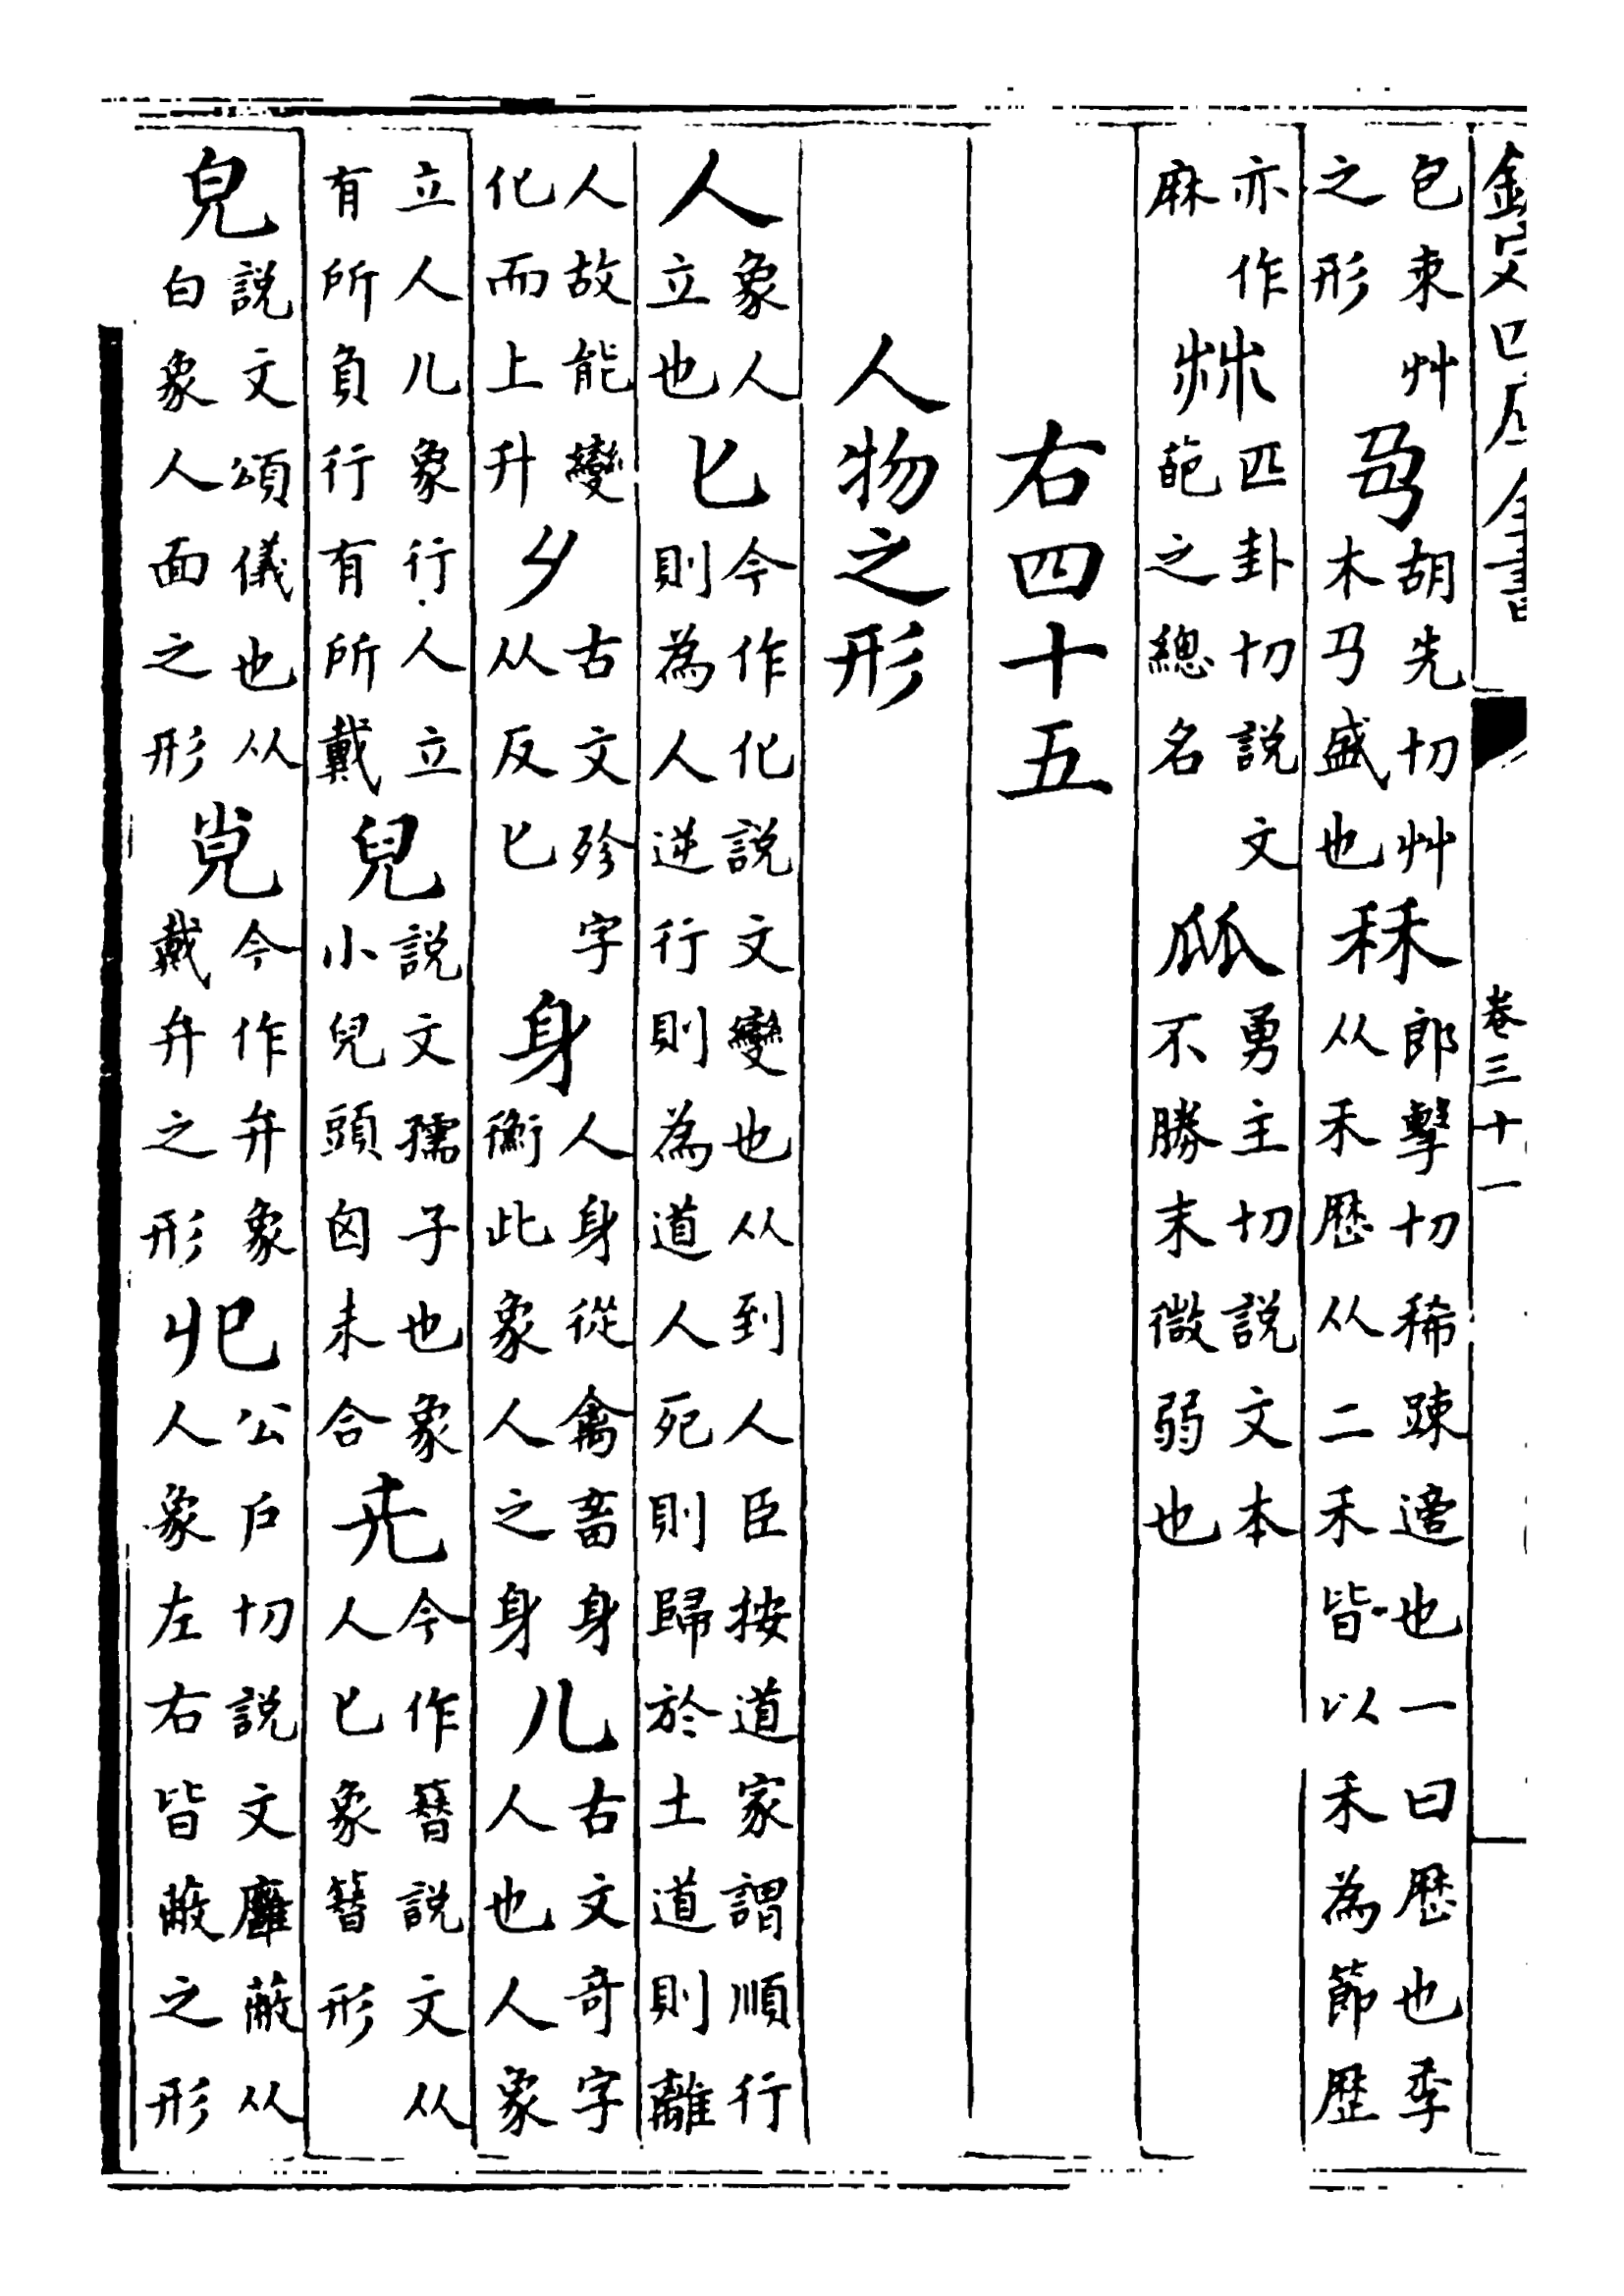 欽定四庫全書 卷三十一
包朿艸之形 𢎘 胡先切艸木㔿盛也 秝 郎擊切稀踈適也一曰歷也季从禾歷从二禾皆以禾為節歷
亦作麻 𣏟 匹卦切説文萉之總名 㼌 勇主切説文本不勝末微弱也
右四十五
人物之形
人 象人立也 匕 今作化説文變也从到人臣按道家謂順行則為人逆行則為道人死則歸於土道則離
人故能變化而上升 古文殄字从反匕 身 人身從禽畜身衡此象人之身 儿 古文奇字人也人象
立人儿象行人立有所負行有所戴 兒 説文孺子也象小兒頭囟未合 兂 今作簪説文从人匕象簪形
皃 説文頌儀也从白象人面之形 㝸 今作弁象戴弁之形 𠑹 公戶切説文廱蔽从人象左右皆蔽之形